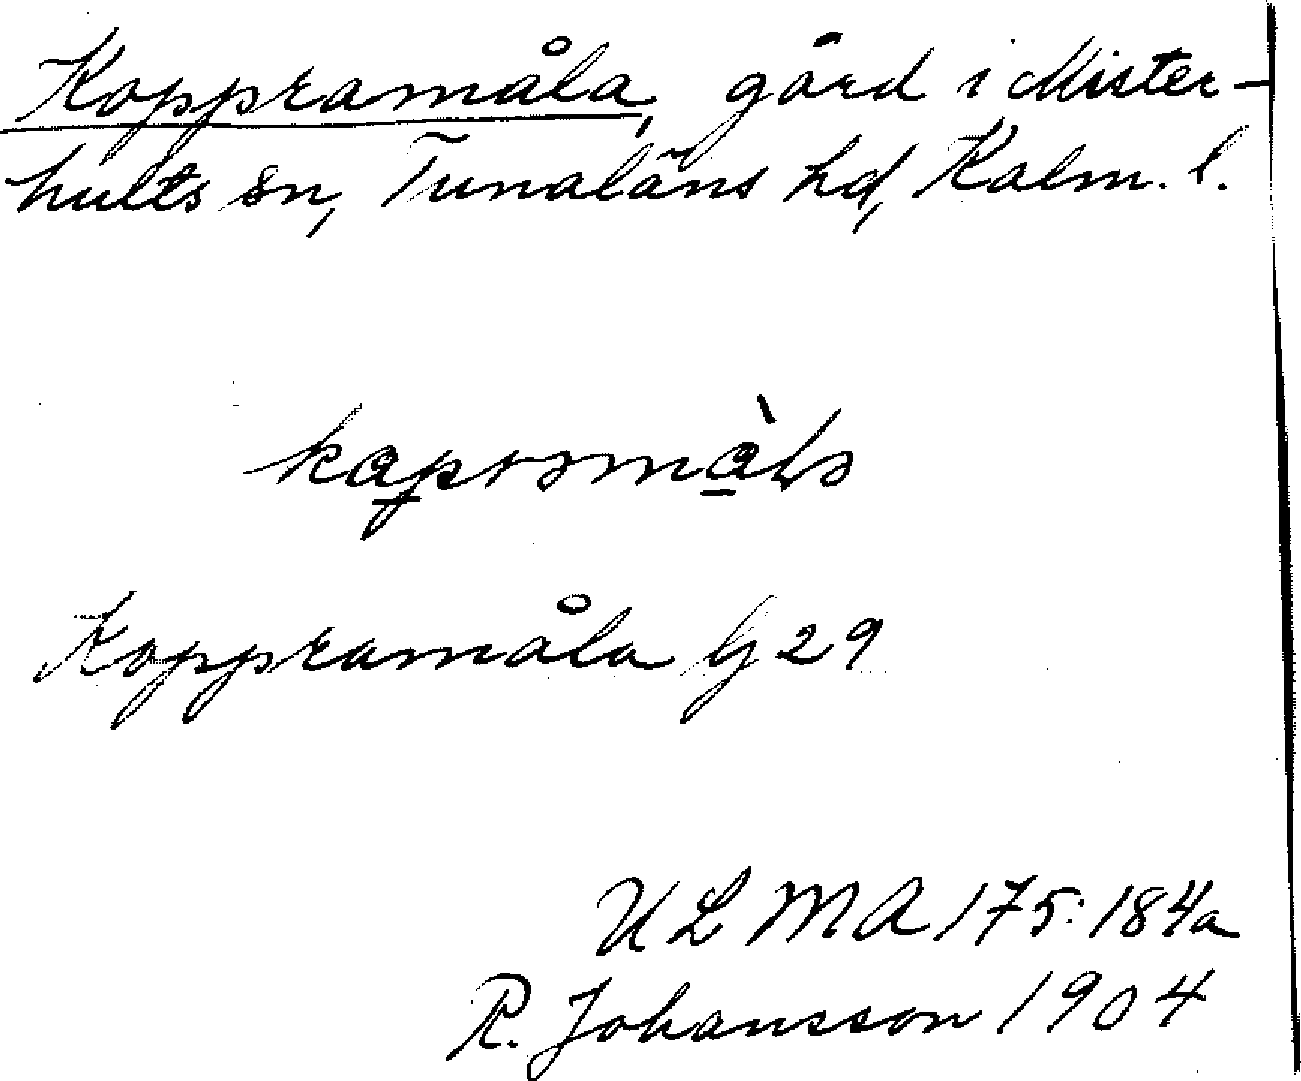 Koppramåla, gård i Mister-
hults sn, Tunaläns hd, Kalm. l.
Koppramåla G 29
ULMA 175:184a
R. Johansson 1904